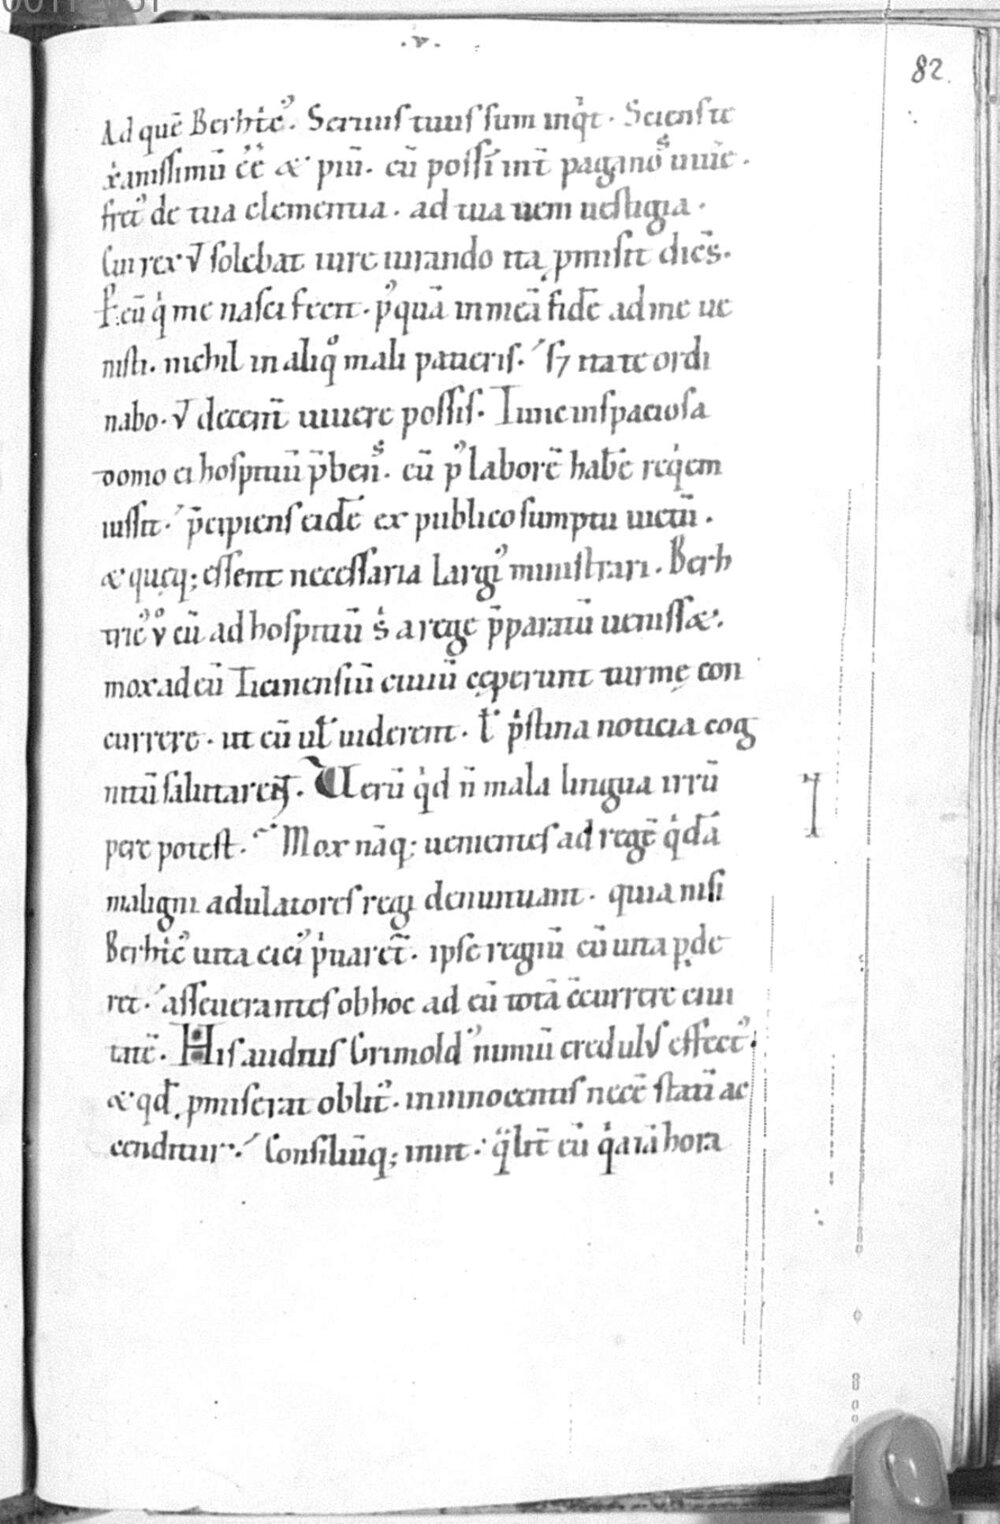 .v.
82.
Ad quē Berhtic᷒. Seruus tuus sum inq̇t. Sciens te
xp̄ianissimū ēē & piū. cū possē int̄ paganos uiuẽ.
fret᷒ de tua clementia. ad tua ueni uestigia.
Cui rex ṽ solebat iure iurando ita ꝓmisit dicēs.
P. eū q̇ me nasci fecit. p᷒quā in meā fidē ad me ue
nisti. nichil in aliq̊ mali patieris. s; ita te ordi
nabo. ṽ decent̄ uiuere possis. Tunc in spaciosa
domo ei hospitiū p̄bens. eū p᷒ laborē habē reqėm
iussit. p̄cipiens eidē ex publico sumptu uictū.
& quęq; essent necessaria largi᷒ ministrari. Berh
tric᷒ v̊ cū ad hospitiū s̓ a rege p̄paratū uenisset.
mox ad eū Ticinensiū ciuiū cęperunt turmę con
currere. ut eū ul̄ uiderent. l̄ p̓stina noticia cog
nitū salutarent. Verū q̇d n̄ mala lingua irrū
pere potest. Mox nāq; uenientes ad regē q̇dā
maligni adulatores regi denuntiant. quia nisi
Berhtic᷒ uita cici᷒ p̓uaret̄. ipse regnū cū uita ꝑde
ret. asseuerantes ob hoc ad eū totā c̄currere ciui
tatē. His auditis Grimold᷒ nimiū credulus effect᷒.
& qđ ꝓmiserat oblit᷒. in innocentis necē statī ac
cenditur. Consiliūq; iniit. q̈lit̄ eū q̇a iā hora